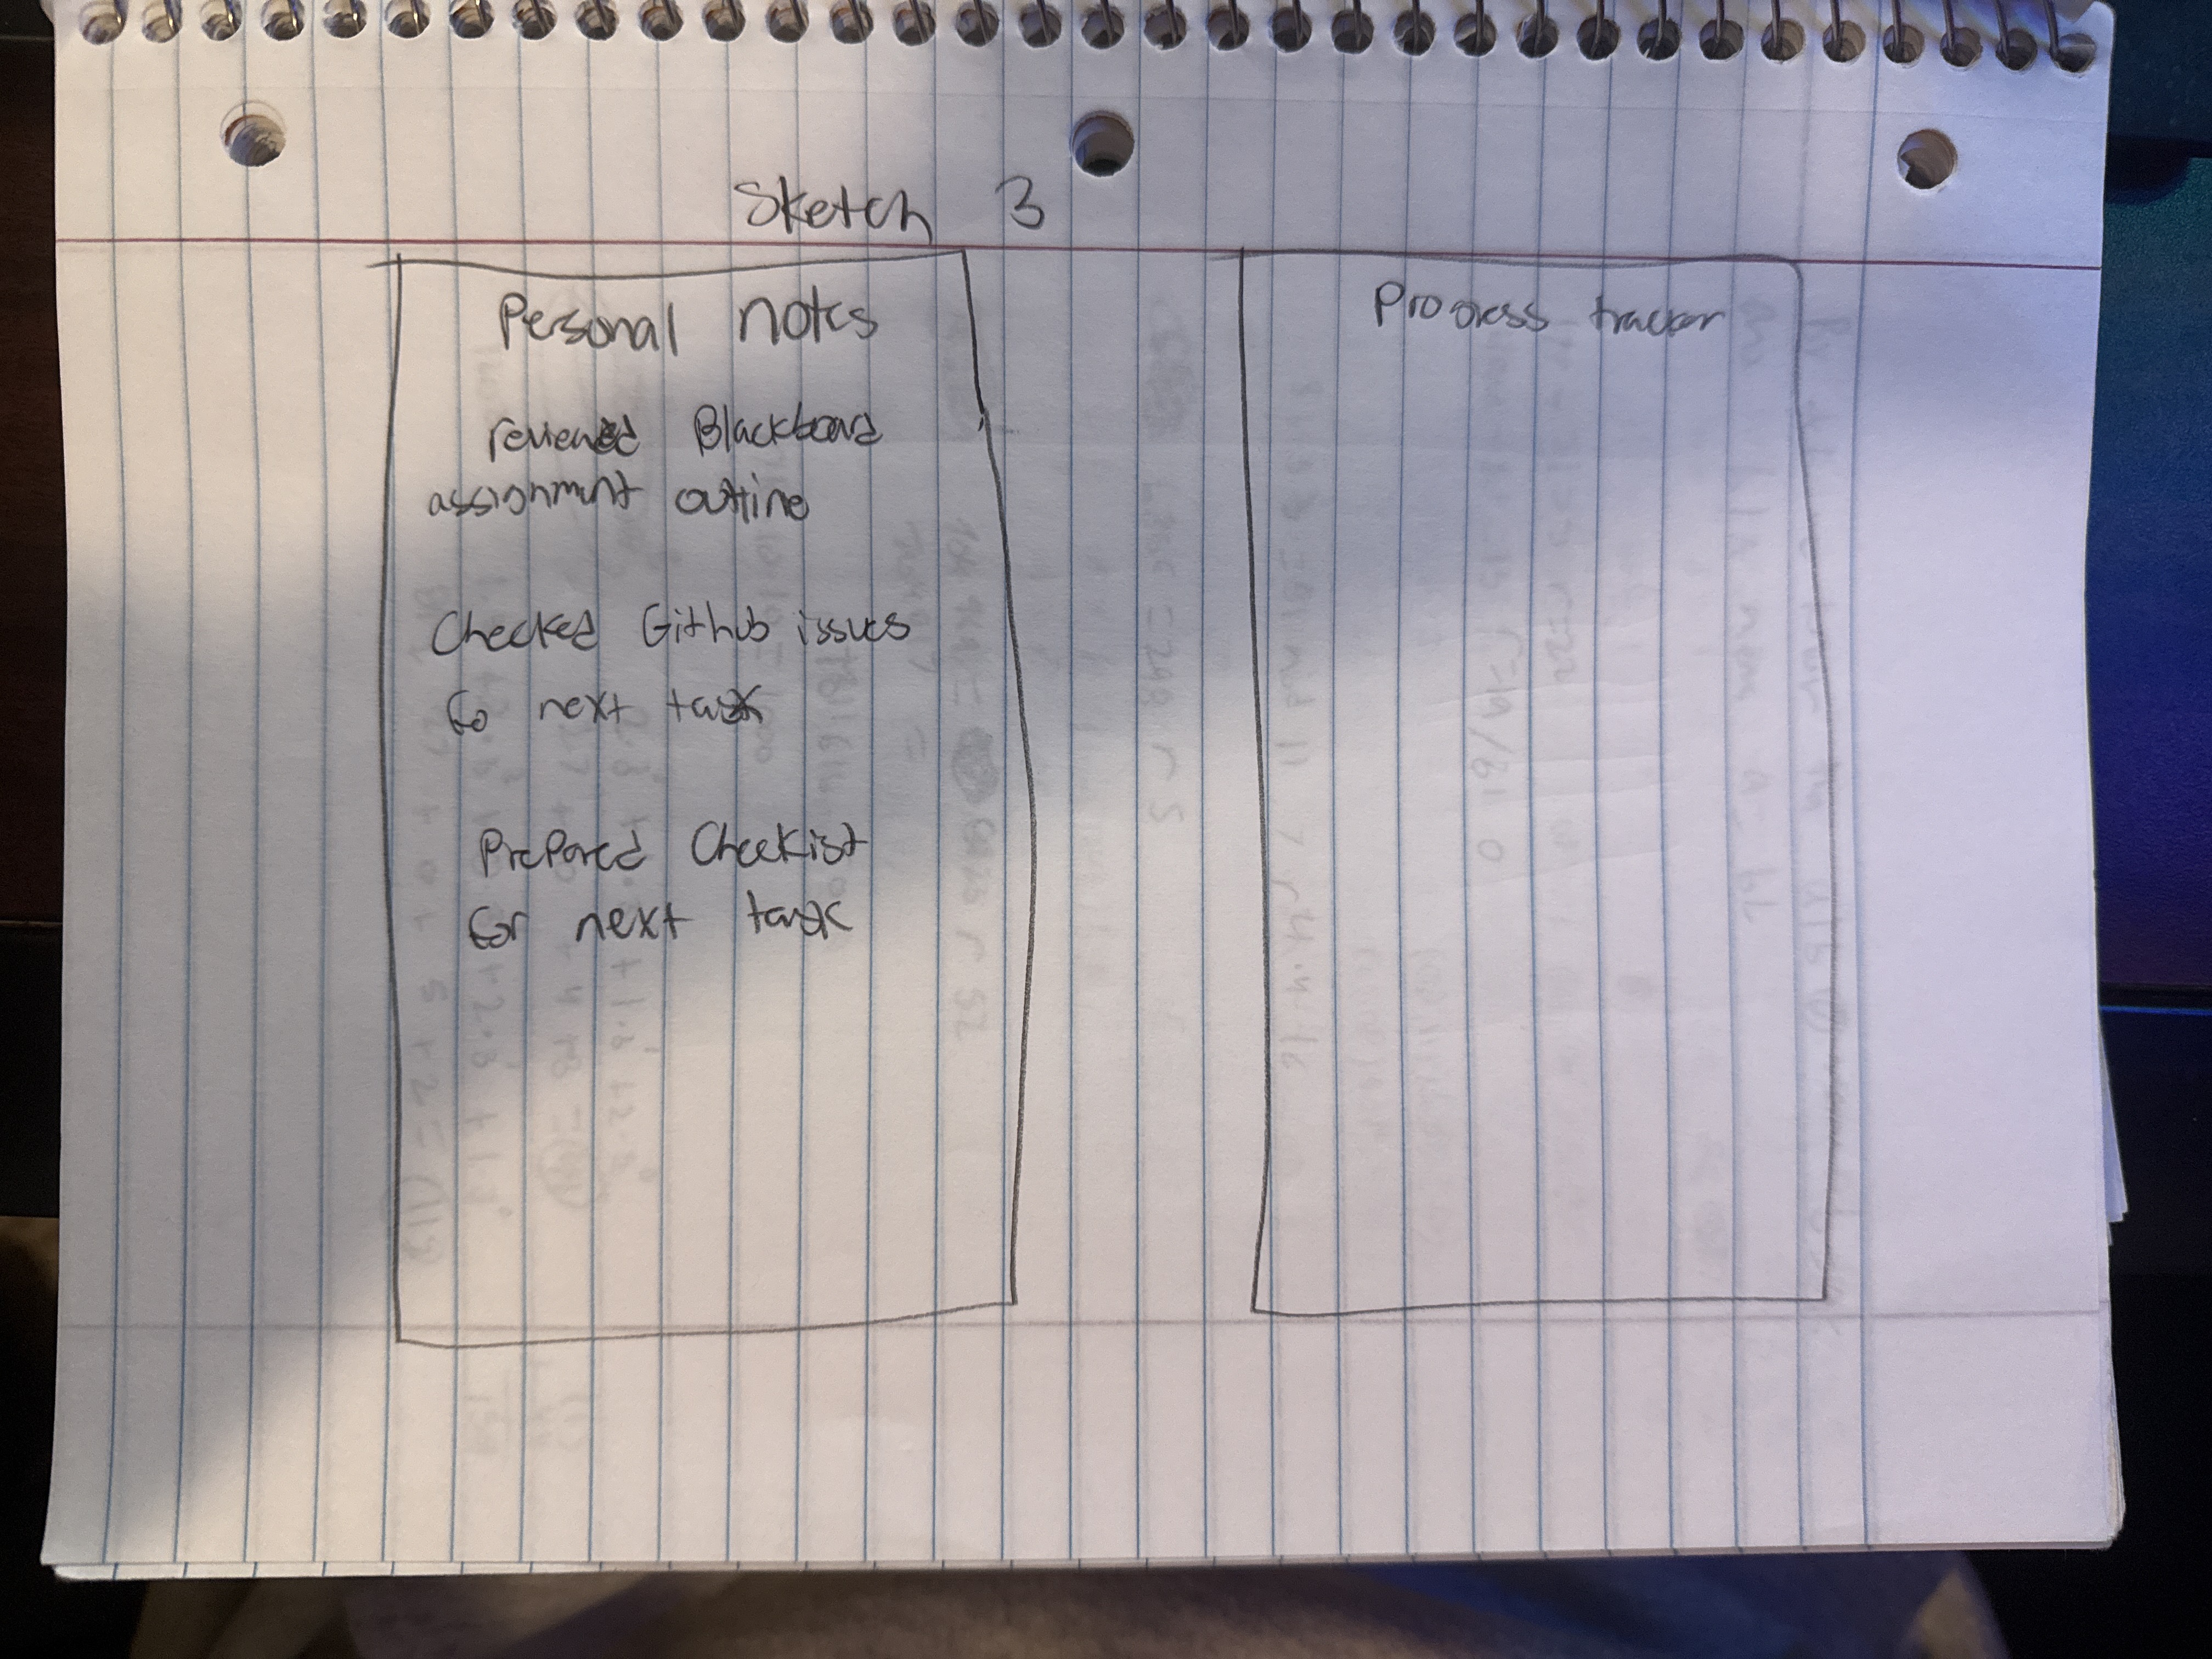 Sketch 3
Personal notes
reviewed Blackboard
assignment outline
Checked Github issues
fo next task
Prepared Checklist
for next task
Progress tracker